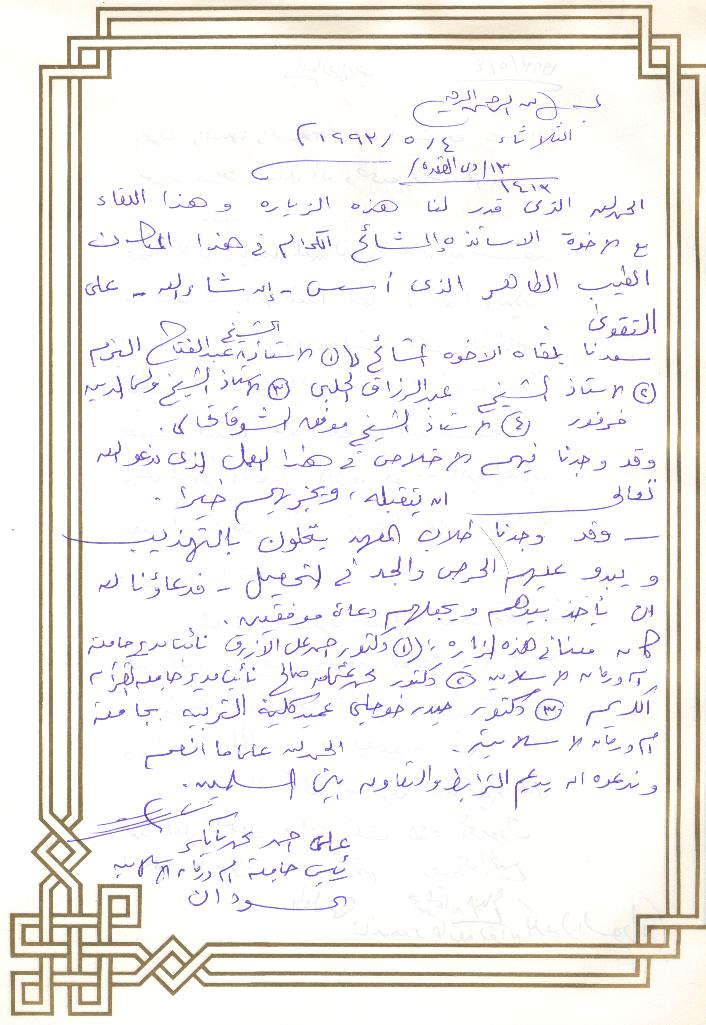 بسم الله الرحمن الرحيم
الثلاثاء ٤/٥/١٩٩٣م
١٣/ذي القعدة/
١٤١٣
الحمد لله الذى قدر لنا هذه الزياره وهذا اللقاء
مع الاخوة الاساتذه والمشائخ الكرام في هذا المكان
الطيب الطاهر الذى أسس - إن شاء الله - على
التقوى .
سعدنا بلقاء الاخوه المشائخ ١ الاستاذ الشيخ عبد الفتاح البزم
٢ الاستاذ الشيخ عبد الرزاق الحلبي ٣ الاستاذ الشيخ ولي الدين
فرفور ٤ الاستاذ الشيخ موفق الشوقاتحلى .
وقد وجدنا فيهم الاخلاص في هذا العمل الذى ندعو الله
تعالى ان يتقبله ، ويجزيهم خيرا .
— وقد وجدنا طلاب المعهد يتحلون بالتهذيب
ويبدو عليهم الحرص والجد في التحصيل - فدعاؤنا لله
ان يأخذ بيدهم ويجعلهم دعاة موفقين .
كان معنا في هذه الزياره : ١ دكتور احمد على الأزرق نائب مدير جامعة
ام درمان الاسلامية ٢ دكتور محمد عثمان صالح نائب مدير جامعة القرآن
الكريم ٣ دكتور حيدر خوجلي عميد كلية التربيه بجامعة
ام درمان الاسلامية . الحمد لله على ما انعم
وندعوه ان يديم الترابط والتعاون بين المسلمين .
على احمد محمد بابكر
رئيس جامعة ام درمان الاسلاميه
السودان